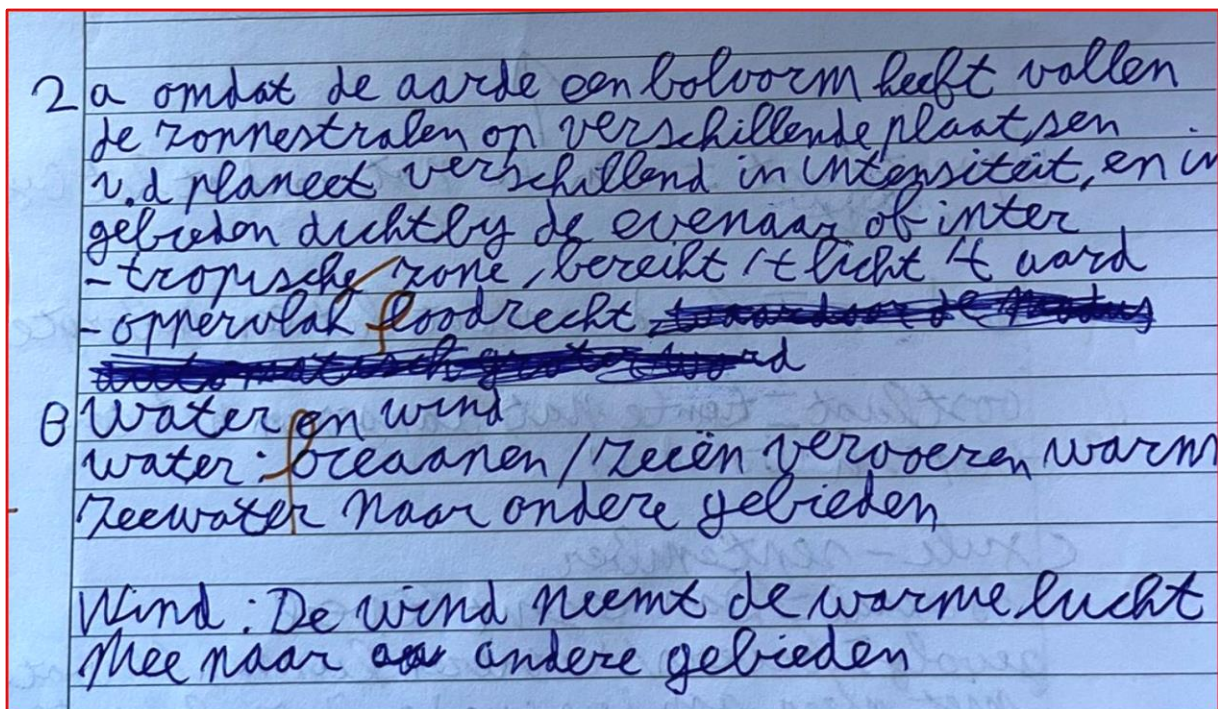 2 a omdat de aarde een bolvorm heeft vallen
de zonnestralen op verschillende plaatsen
v.d planeet verschillend in intensiteit, en in
gebieden dichtby de evenaar of inter
-tropische zone, bereikt 't licht 't aard
-oppervlak loodrecht
B Water en wind
water: oceaanen / zeeën vervoeren warm
zeewater naar andere gebieden
Wind: De wind neemt de warme lucht
mee naar andere gebieden